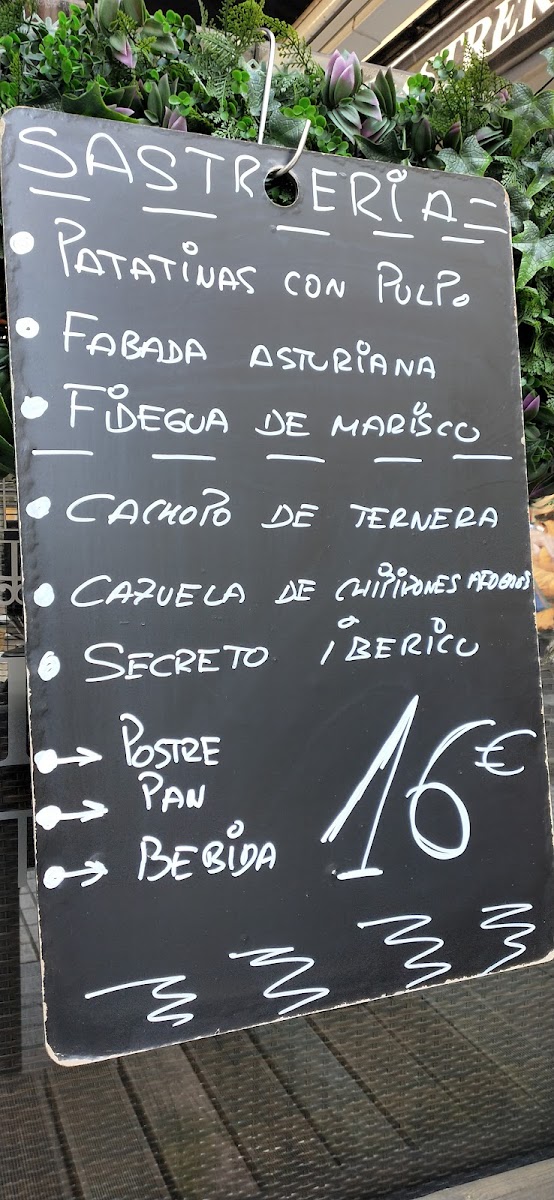 SASTRERIA
PATATINAS CON PULPO
FABADA ASTURIANA
FIDEGUA DE MARISCO
CACHOPO DE TERNERA
CAZUELA DE CHIPIRONES AFOGAOS
SECRETO IBERICO
POSTRE
PAN
BEBIDA
16€